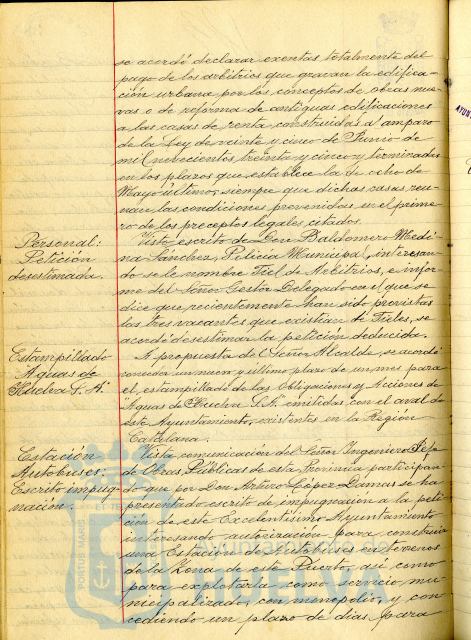 se acordó declarar exentas totalmente del
pago de los arbitrios que gravan la edifica-
ción urbana por los conceptos de obras nue-
vas o de reforma de antiguas edificaciones
a las casas de renta construidas a amparo
de la Ley de veinte y cinco de Junio de
mil novecientos treinta y cinco y terminadas
en los plazos que establece la de ocho de
Mayo último, siempre que dichas casas reu-
nan las condiciones prevenidas en el prime-
ro de los preceptos legales citados.
Personal:
Petición
desestimada.
Visto escrito de Don Baldomero Medi-
na Sánchez, Policía Municipal, interesan-
do se le nombre Fiel de Arbitrios, e infor-
me del Señor Gestor Delegado en el que se
dice que recientemente han sido provistas
las tres vacantes que existían de Fieles, se
acordó desestimar la petición deducida.
Estampillado
"Aguas de
Huelva S.A."
A propuesta del Señor Alcalde, se acordó
conceder un nuevo y último plazo de un mes para
el estampillado de las Obligaciones y Acciones de
"Aguas de Huelva S.A." emitidas con el aval de
este Ayuntamiento, existentes en la Región
Catalana.
Estación
Autobuses:
Escrito impug-
nación.
Vista comunicación del Señor Ingeniero Jefe
de Obras Públicas de esta Provincia participan-
do que por Don Arturo López Damas se ha
presentado escrito de impugnación a la peti-
ción de este Excelentísimo Ayuntamiento
interesando autorización para construir
una Estación de Autobuses en terrenos
de la Zona de este Puerto, así como
para explotarla como servicio mu-
nicipalizado, con monopolio, y con-
cediendo un plazo de días para
PORTUS MARIS